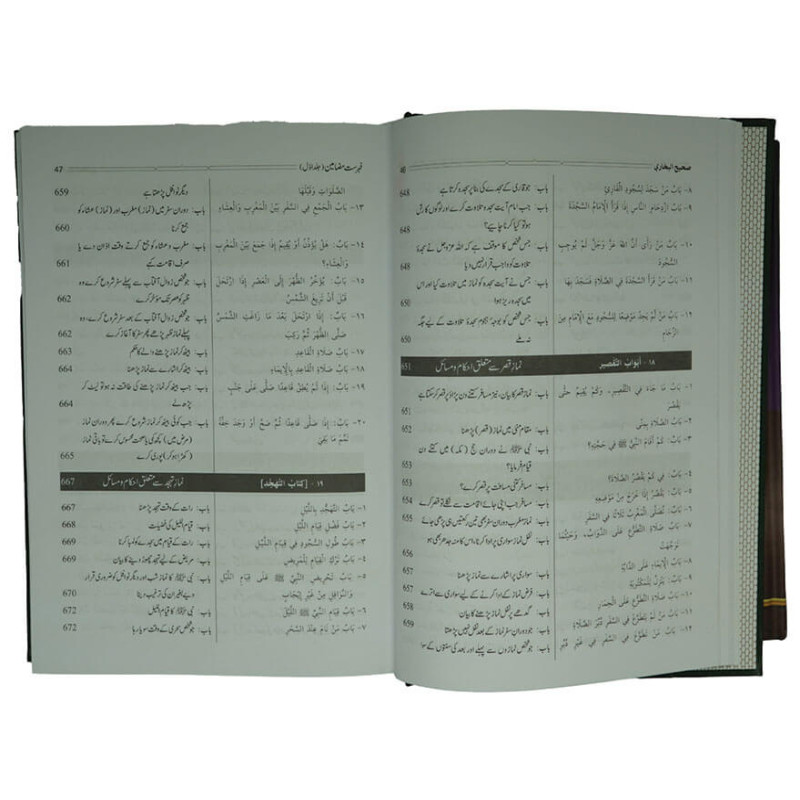 صحيح البخاري
٨- بَابُ مَنْ سَجَدَ لِسُجُودِ الْقَارِئِ
باب: جو قاری کے سجدے کی بنا پر سجدہ کرتا ہے 648
٩- بَابُ ازْدِحَامِ النَّاسِ إِذَا قَرَأَ الْإِمَامُ السَّجْدَةَ
باب: جب امام آیت سجدہ تلاوت کرے اور لوگوں کا رش
ہو تو کیا کرنا چاہیے؟ 648
١٠- بَابُ مَنْ رَأَى أَنَّ اللهَ عَزَّ وَجَلَّ لَمْ يُوجِبِ
السُّجُودَ
باب: جس شخص کا موقف ہے کہ اللہ عزوجل نے سجدۂ
تلاوت کو واجب قرار نہیں دیا 648
١١- بَابُ مَنْ قَرَأَ السَّجْدَةَ فِي الصَّلَاةِ فَسَجَدَ بِهَا
باب: جس نے آیت سجدہ کو نماز میں تلاوت کیا اور اس
میں سجدہ ریز ہوا 650
١٢- بَابُ مَنْ لَمْ يَجِدْ مَوْضِعًا لِلسُّجُودِ مَعَ الْإِمَامِ مِنَ
الزِّحَامِ
باب: جس شخص کو بوجہ ہجوم سجدۂ تلاوت کے لیے جگہ
نہ ملے 650
١٨ - أبواب التقصير نماز قصر سے متعلق احکام و مسائل 651
١- بَابُ مَا جَاءَ فِي التَّقْصِيرِ، وَكَمْ يُقِيمُ حَتَّى
يَقْصُرَ
باب: نماز قصر کا بیان، نیز مسافر کتنے دن پڑاؤ پر قصر کر سکتا ہے 651
٢- بَابُ الصَّلَاةِ بِمِنًى
باب: مقام منیٰ میں نماز (قصر) پڑھنا 652
٣- بَابٌ: كَمْ أَقَامَ النَّبِيُّ ﷺ فِي حَجَّتِهِ؟
باب: نبی ﷺ نے دوران حج (مکہ) میں کتنے دن
قیام فرمایا؟ 653
٤- بَابٌ: فِي كَمْ يَقْصُرُ الصَّلَاةَ؟
باب: مسافر کتنی مسافت پر قصر کرے؟
٥- بَابٌ: يَقْصُرُ إِذَا خَرَجَ مِنْ مَوْضِعِهِ
باب: مسافر جب اپنی جائے اقامت سے نکلے تو قصر کرے 654
٦- بَابٌ: تُصَلَّى الْمَغْرِبُ ثَلَاثًا فِي السَّفَرِ
باب: نماز مغرب دوران سفر بھی تین رکعتیں ہی پڑھی جائے 655
٧- بَابُ صَلَاةِ التَّطَوُّعِ عَلَى الدَّوَابِّ، وَحَيْثُمَا
تَوَجَّهَتْ
باب: نفل نماز سواری پر ادا کرنا، اس کا منہ جدھر بھی ہو 656
٨- بَابُ الْإِيمَاءِ عَلَى الدَّابَّةِ
باب: سواری پر اشارے سے نماز پڑھنا 656
٩- بَابٌ: يَنْزِلُ لِلْمَكْتُوبَةِ
باب: فرض نماز کے ادا کرنے کے لیے سواری سے اترے 657
١٠- بَابُ صَلَاةِ التَّطَوُّعِ عَلَى الْحِمَارِ
باب: گدھے پر نفل نماز پڑھنے کا بیان 658
١١- بَابُ مَنْ لَمْ يَتَطَوَّعْ فِي السَّفَرِ دُبُرَ الصَّلَاةِ
باب: جو دوران سفر نماز کے بعد نفل نہیں پڑھتا 659
١٢- بَابُ مَنْ تَطَوَّعَ فِي السَّفَرِ فِي غَيْرِ دُبُرِ
باب: جو شخص نمازوں سے پہلے اور بعد کی سنتوں کے سوا
فہرست مضامین (جلد اوّل) 47
الصَّلَوَاتِ وَقَبْلَهَا
دیگر نوافل پڑھتا ہے 659
١٣- بَابُ الْجَمْعِ فِي السَّفَرِ بَيْنَ الْمَغْرِبِ وَالْعِشَاءِ
باب: دوران سفر میں (نماز) مغرب اور (نماز) عشاء کو
جمع کرنا 660
١٤- بَابٌ: هَلْ يُؤَذِّنُ أَوْ يُقِيمُ إِذَا جَمَعَ بَيْنَ الْمَغْرِبِ
وَالْعِشَاءِ؟
باب: مغرب و عشاء کو جمع کرتے وقت اذان دے یا
صرف اقامت کہے 661
١٥- بَابٌ: يُؤَخِّرُ الظُّهْرَ إِلَى الْعَصْرِ إِذَا ارْتَحَلَ
قَبْلَ أَنْ تَزِيغَ الشَّمْسُ
باب: جو شخص زوال آفتاب سے پہلے سفر شروع کرے وہ
ظہر کو عصر تک مؤخر کرے 662
١٦- بَابٌ: إِذَا ارْتَحَلَ بَعْدَ مَا زَاغَتِ الشَّمْسُ
صَلَّى الظُّهْرَ ثُمَّ رَكِبَ
باب: جو شخص زوال آفتاب کے بعد سفر شروع کرے، وہ
پہلے نماز ظہر پڑھے پھر سفر کا آغاز کرے 662
١٧- بَابُ صَلَاةِ الْقَاعِدِ
باب: بیٹھ کر نماز پڑھنے والے کا حکم 663
١٨- بَابُ صَلَاةِ الْقَاعِدِ بِالْإِيمَاءِ
باب: بیٹھ کر اشارے سے نماز پڑھنا 664
١٩- بَابٌ: إِذَا لَمْ يُطِقْ قَاعِدًا صَلَّى عَلَى جَنْبٍ
باب: جب بیٹھ کر نماز پڑھنے کی طاقت نہ ہو تو لیٹ کر
پڑھ لے 664
٢٠- بَابٌ: إِذَا صَلَّى قَاعِدًا ثُمَّ صَحَّ أَوْ وَجَدَ خِفَّةً
تَمَّمَ مَا بَقِيَ
باب: جب کوئی بیٹھ کر نماز شروع کرے پھر دوران نماز
(مرض میں) کچھ کمی یا صحت محسوس کرے تو باقی نماز
(کھڑا ہو کر) پوری کرے 665
١٩ - [كتاب التهجد] نماز تہجد سے متعلق احکام و مسائل 667
١- بَابُ التَّهَجُّدِ بِاللَّيْلِ
باب: رات کے وقت نماز تہجد پڑھنا 667
٢- بَابُ فَضْلِ قِيَامِ اللَّيْلِ
باب: قیام اللیل کی فضیلت 668
٣- بَابُ طُولِ السُّجُودِ فِي قِيَامِ اللَّيْلِ
باب: رات کے قیام میں لمبے سجدے کرنا 669
٤- بَابُ تَرْكِ الْقِيَامِ لِلْمَرِيضِ
باب: مریض کے لیے تہجد چھوڑ دینے کا بیان 669
٥- بَابُ تَحْرِيضِ النَّبِيِّ ﷺ عَلَى قِيَامِ اللَّيْلِ
وَالنَّوَافِلِ مِنْ غَيْرِ إِيجَابٍ
باب: نبی ﷺ کا نماز شب اور دیگر نوافل کو ضروری قرار
دیے بغیر ان کی ترغیب دینا 670
٦- بَابُ قِيَامِ النَّبِيِّ ﷺ اللَّيْلَ
باب: نبی ﷺ کا قیام اللیل 672
٧- بَابُ مَنْ نَامَ عِنْدَ السَّحَرِ
باب: جو شخص سحری کے وقت سویا رہا 672